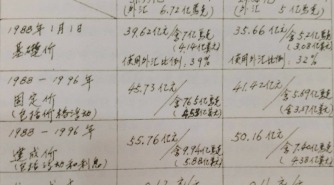 (外汇 6.72亿美元)
1988年1月1日
基础价
39.62亿元/含7亿美元
(4.14亿美元)
使用外汇比例:39%
35.66亿元/含5.2亿美元
(3.03亿美元)
使用外汇比例:32%
1988-1996年
固定价
(包括价格浮动)
45.73亿元
/含7.65亿美元
41.42亿元
/含5.69亿美元
(含3.17亿美元)
1988-1996年
建成价
(包括浮动和利息)
55.76亿元
/含9.94亿美元
(5.88亿美元)
50.16亿元
/含7.40亿美元
(4.38亿美元)